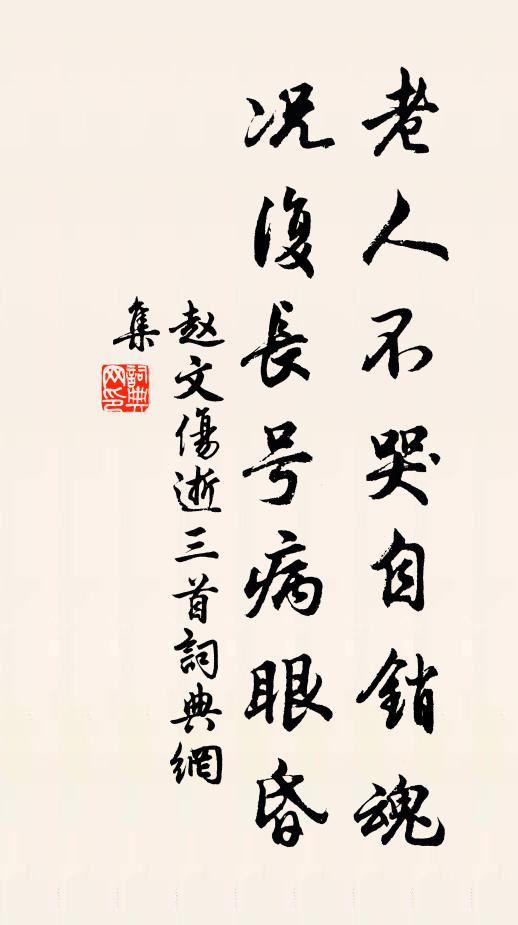 老人不哭自銷魂
况復長号病眼昏
赵文傷逝三首詞典網
集
詞典网印